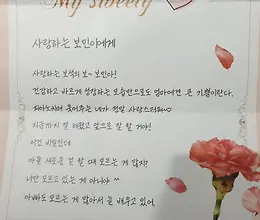 My sweety
사랑하는 보민이에게
사랑하는 보석의 보~ 보민아!
건강하고 바르게 성장하는 모습만으로도 엄마에겐 큰 기쁨이란다.
웃어주는 네가 정말 사랑스러워~♡
지금까지 잘 해왔고 앞으로 잘 할 거야!
이건 비밀인데
아들 새로운 걸 할 때 모르는 게 많지?
너만 모르고 있는 게 아니야 ^^
아빠도 모르는 게 많아서 늘 배우고 있어